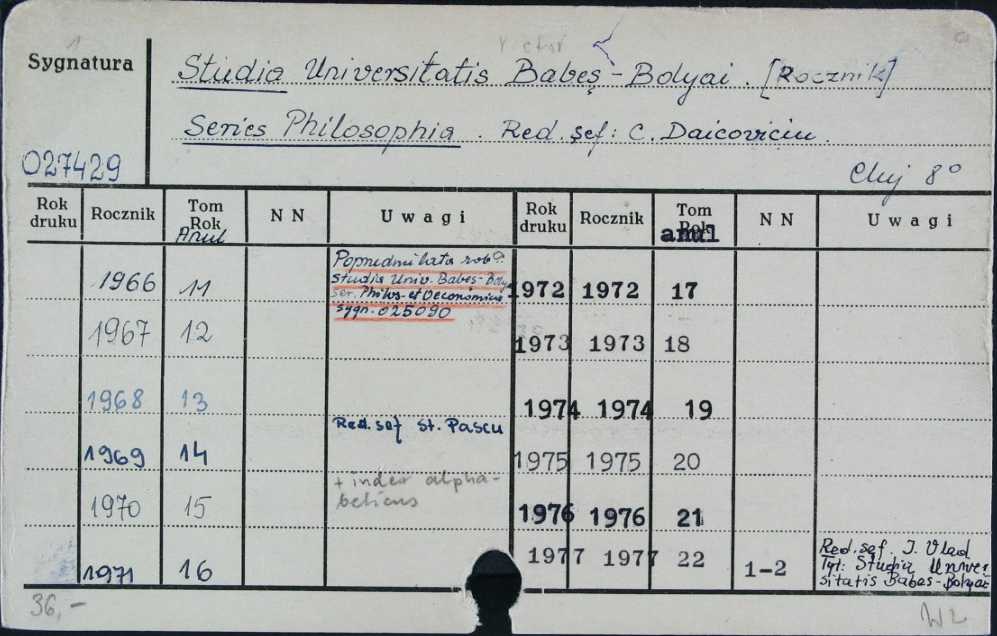 Sygnatura
Studia Universitatis Babeş-Bolyai. [Rocznik]
Series Philosophia. Red. şef: C. Daicoviciu.
027429
Cluj 8°
Rok druku Rocznik Tom Rok Anul NN Uwagi Rok druku Rocznik Tom Rok anul NN Uwagi
Poprzednie lata rob.
Studia Univ. Babeş-Boly
ser. Philos. et Oeconomica
sygn. 025090
1966 11 1972 1972 17
1967 12 1973 1973 18
1968 13 1974 1974 19
Red. şef St. Pascu
1969 14 1975 1975 20
+ index alpha-
beticus
1970 15 1976 1976 21
1971 16 1977 1977 22 1-2
Red. şef. I. Vlad
Tyt: Studia Univer
sitatis Babeş-Bolyai
36,-